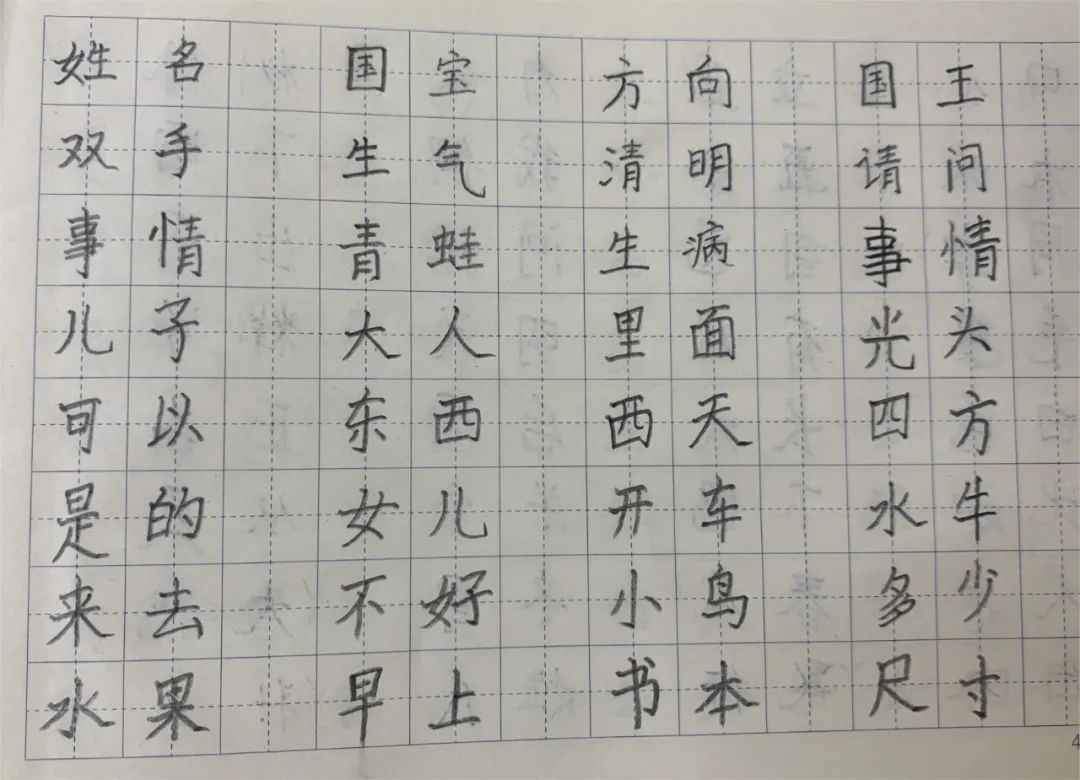 姓名 国宝 方向 国王
双手 生气 清明 请问
事情 青蛙 生病 事情
儿子 大人 里面 光头
可以 东西 西天 四方
是的 女儿 开车 水牛
来去 不好 小鸟 多少
水果 早上 书本 尺寸
4